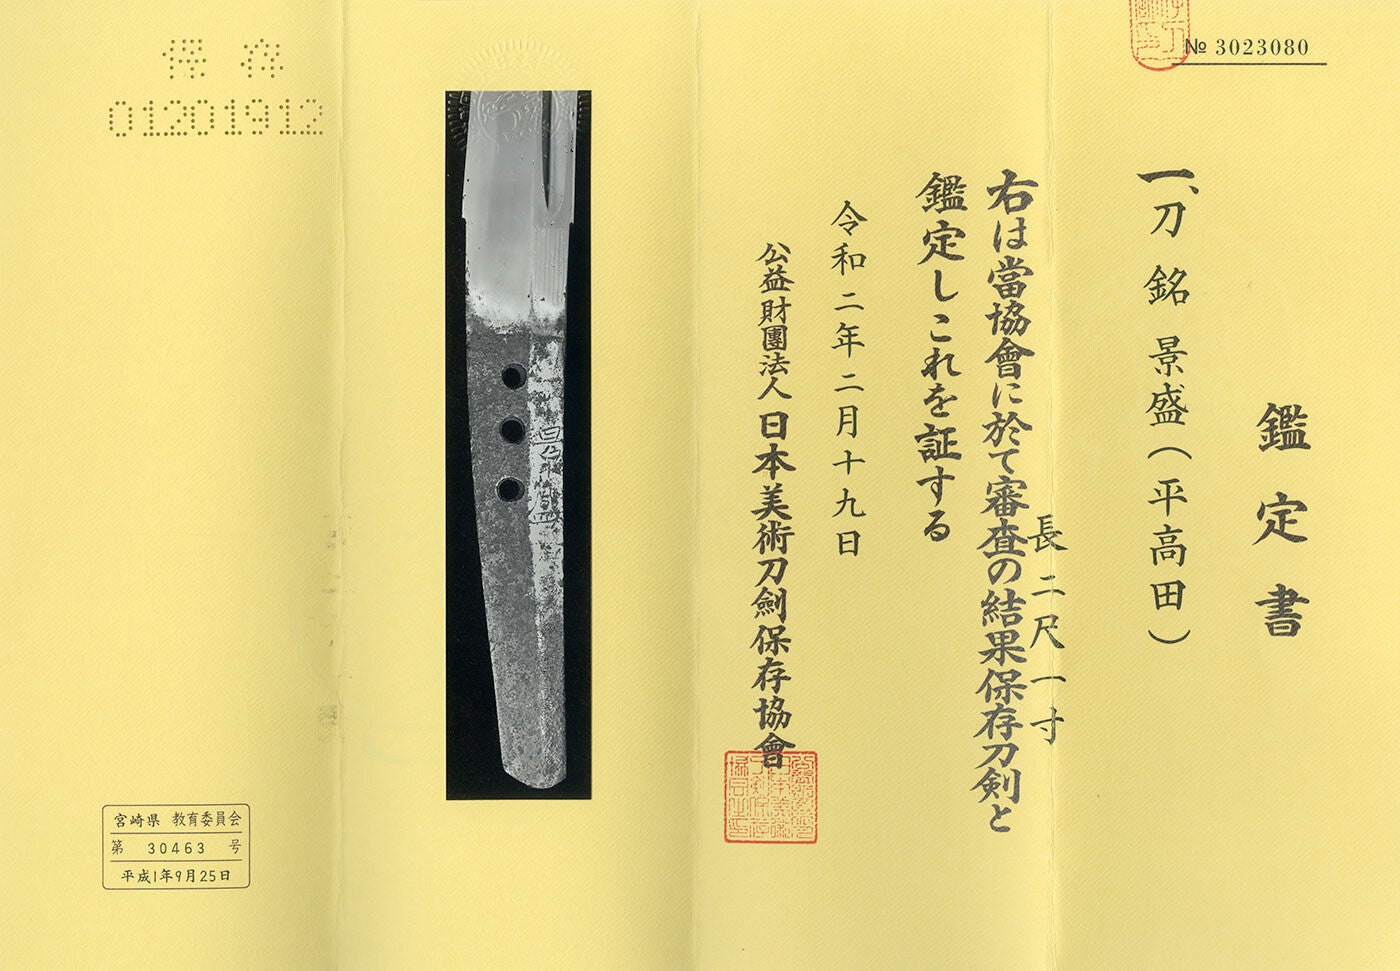 № 3023080
鑑定書
一、刀 銘 景盛(平高田)
長二尺一寸
右は當協會に於て審査の結果保存刀剣と
鑑定しこれを証する
令和二年二月十九日
公益財團法人日本美術刀劍保存協會
景盛
保存
01201912
宮崎県 教育委員会
第 30463 号
平成1年9月25日